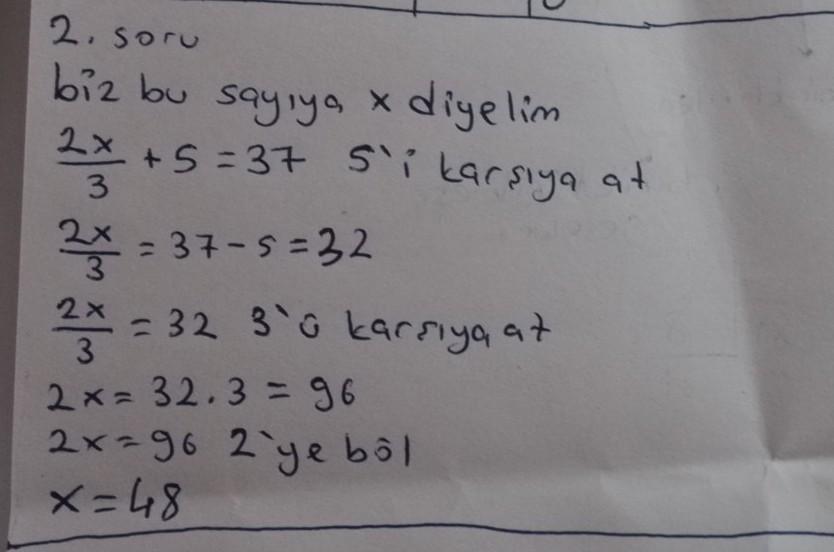 2. soru
biz bu sayıya x diyelim
2x/3 + 5 = 37 5'i karşıya at
2x/3 = 37 - 5 = 32
2x/3 = 32 3'ü karşıya at
2x = 32.3 = 96
2x = 96 2'ye böl
x = 48